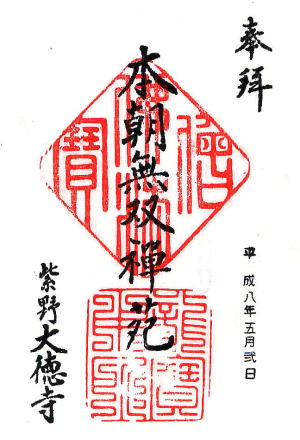 奉拝
平成八年五月弐日
本朝無双禅苑
紫野大徳寺